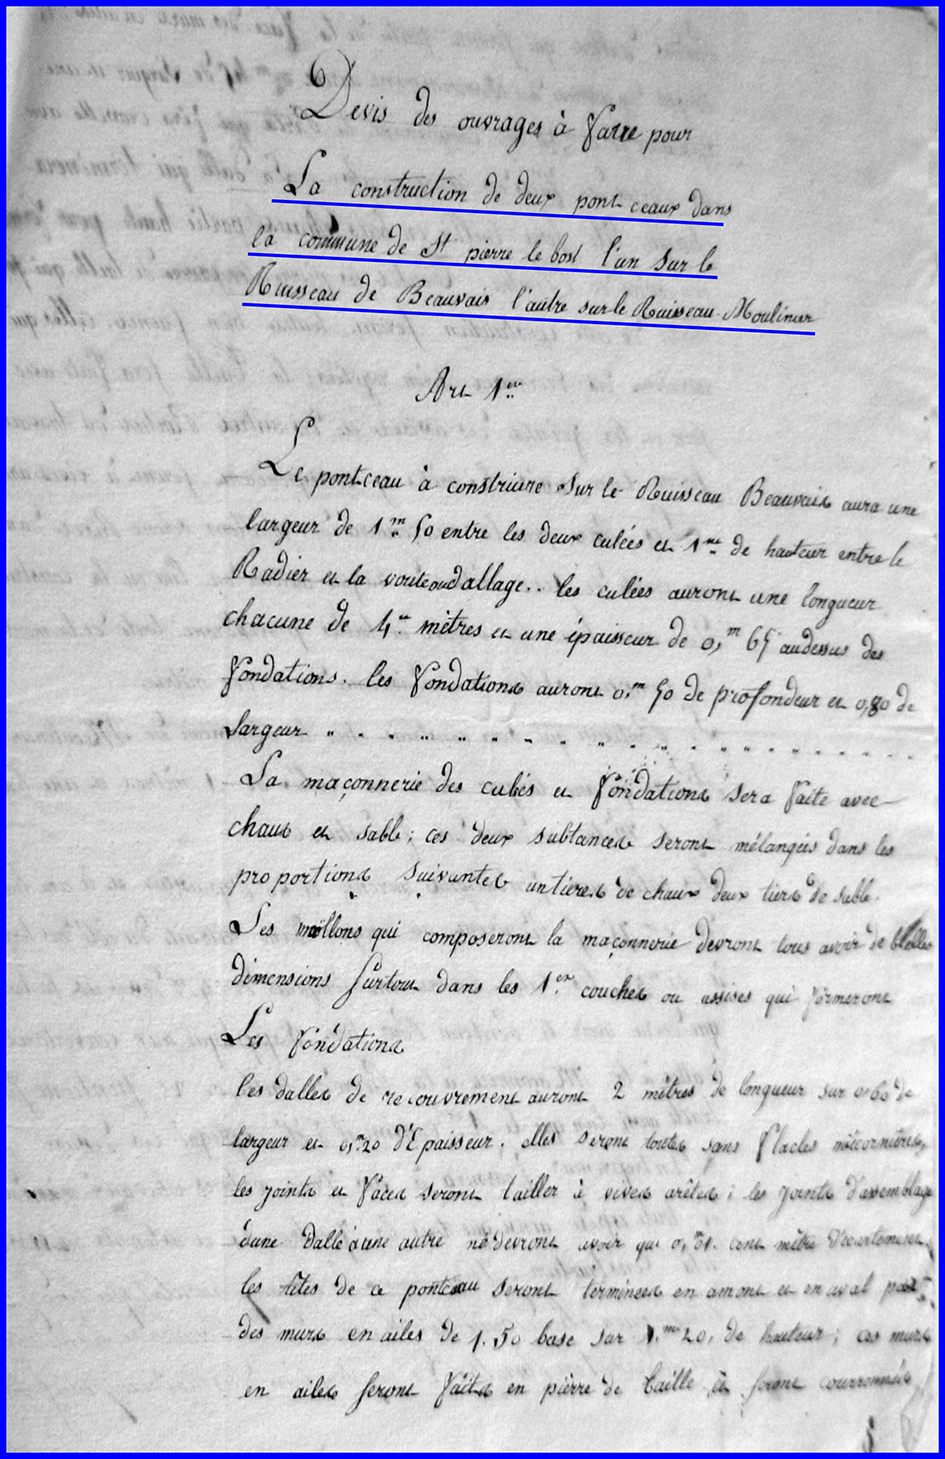 Devis des ouvrages à faire pour
La construction de deux pont ceaux dans
la commune de St pierre le bost l'un sur le
Ruisseau de Beauvais l'autre sur le Ruisseau Moulinier
Art 1er
Le pontceau à construire sur le Ruisseau Beauvais aura une
largeur de 1m 50 entre les deux culées et 1me de hauteur entre le
Radier et la voute ou dallage.. les culées auront une longueur
chacune de 4 mètres et une épaisseur de 0,m 65 audessus des
fondations. les fondations auront 0,m 50 de profondeur et 0,80 de
largeur
La maçonnerie des culées et fondations sera faite avec
chaux et sable; ces deux subtances seront mélangées dans les
proportions suivantes un tiers de chaux deux tiers de sable.
Les moëllons qui composeront la maçonnerie devront tous avoir de belles
dimensions surtout dans les 1er couches ou assises qui formeront
Les fondations
les dalles de recouvrement auront 2 mètres de longueur sur 0m60 de
largeur et 0,m20 d'Epaisseur. elles seront toutes sans flaches ni écornières,
les joints et faces seront tailler à vives arêtes; les joints d'assemblage
d'une dalle à une autre ne devront avoir que 0,m01. cent mètre d'écartement
les têtes de ce pontceau seront terminées en amont et en aval par
des murs en ailes de 1.50 base sur 1.m20, de hauteur; ces murs
en ailes seront faits en pierre de taille et seront couronnés